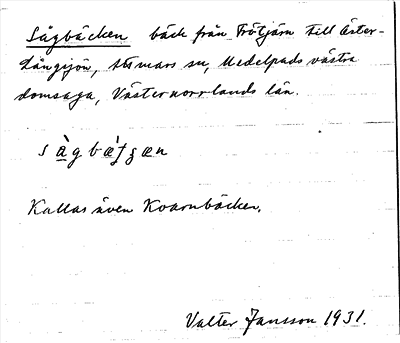 Sågbäcken bäck från Trötjärn till Öster-
Långsjön, Attmars sn, Medelpads västra
domsaga, Västernorrlands län.
sàgbæ̀ʃʒæn
Kallas även Kvarnbäcken.
Valter Jansson 1931.